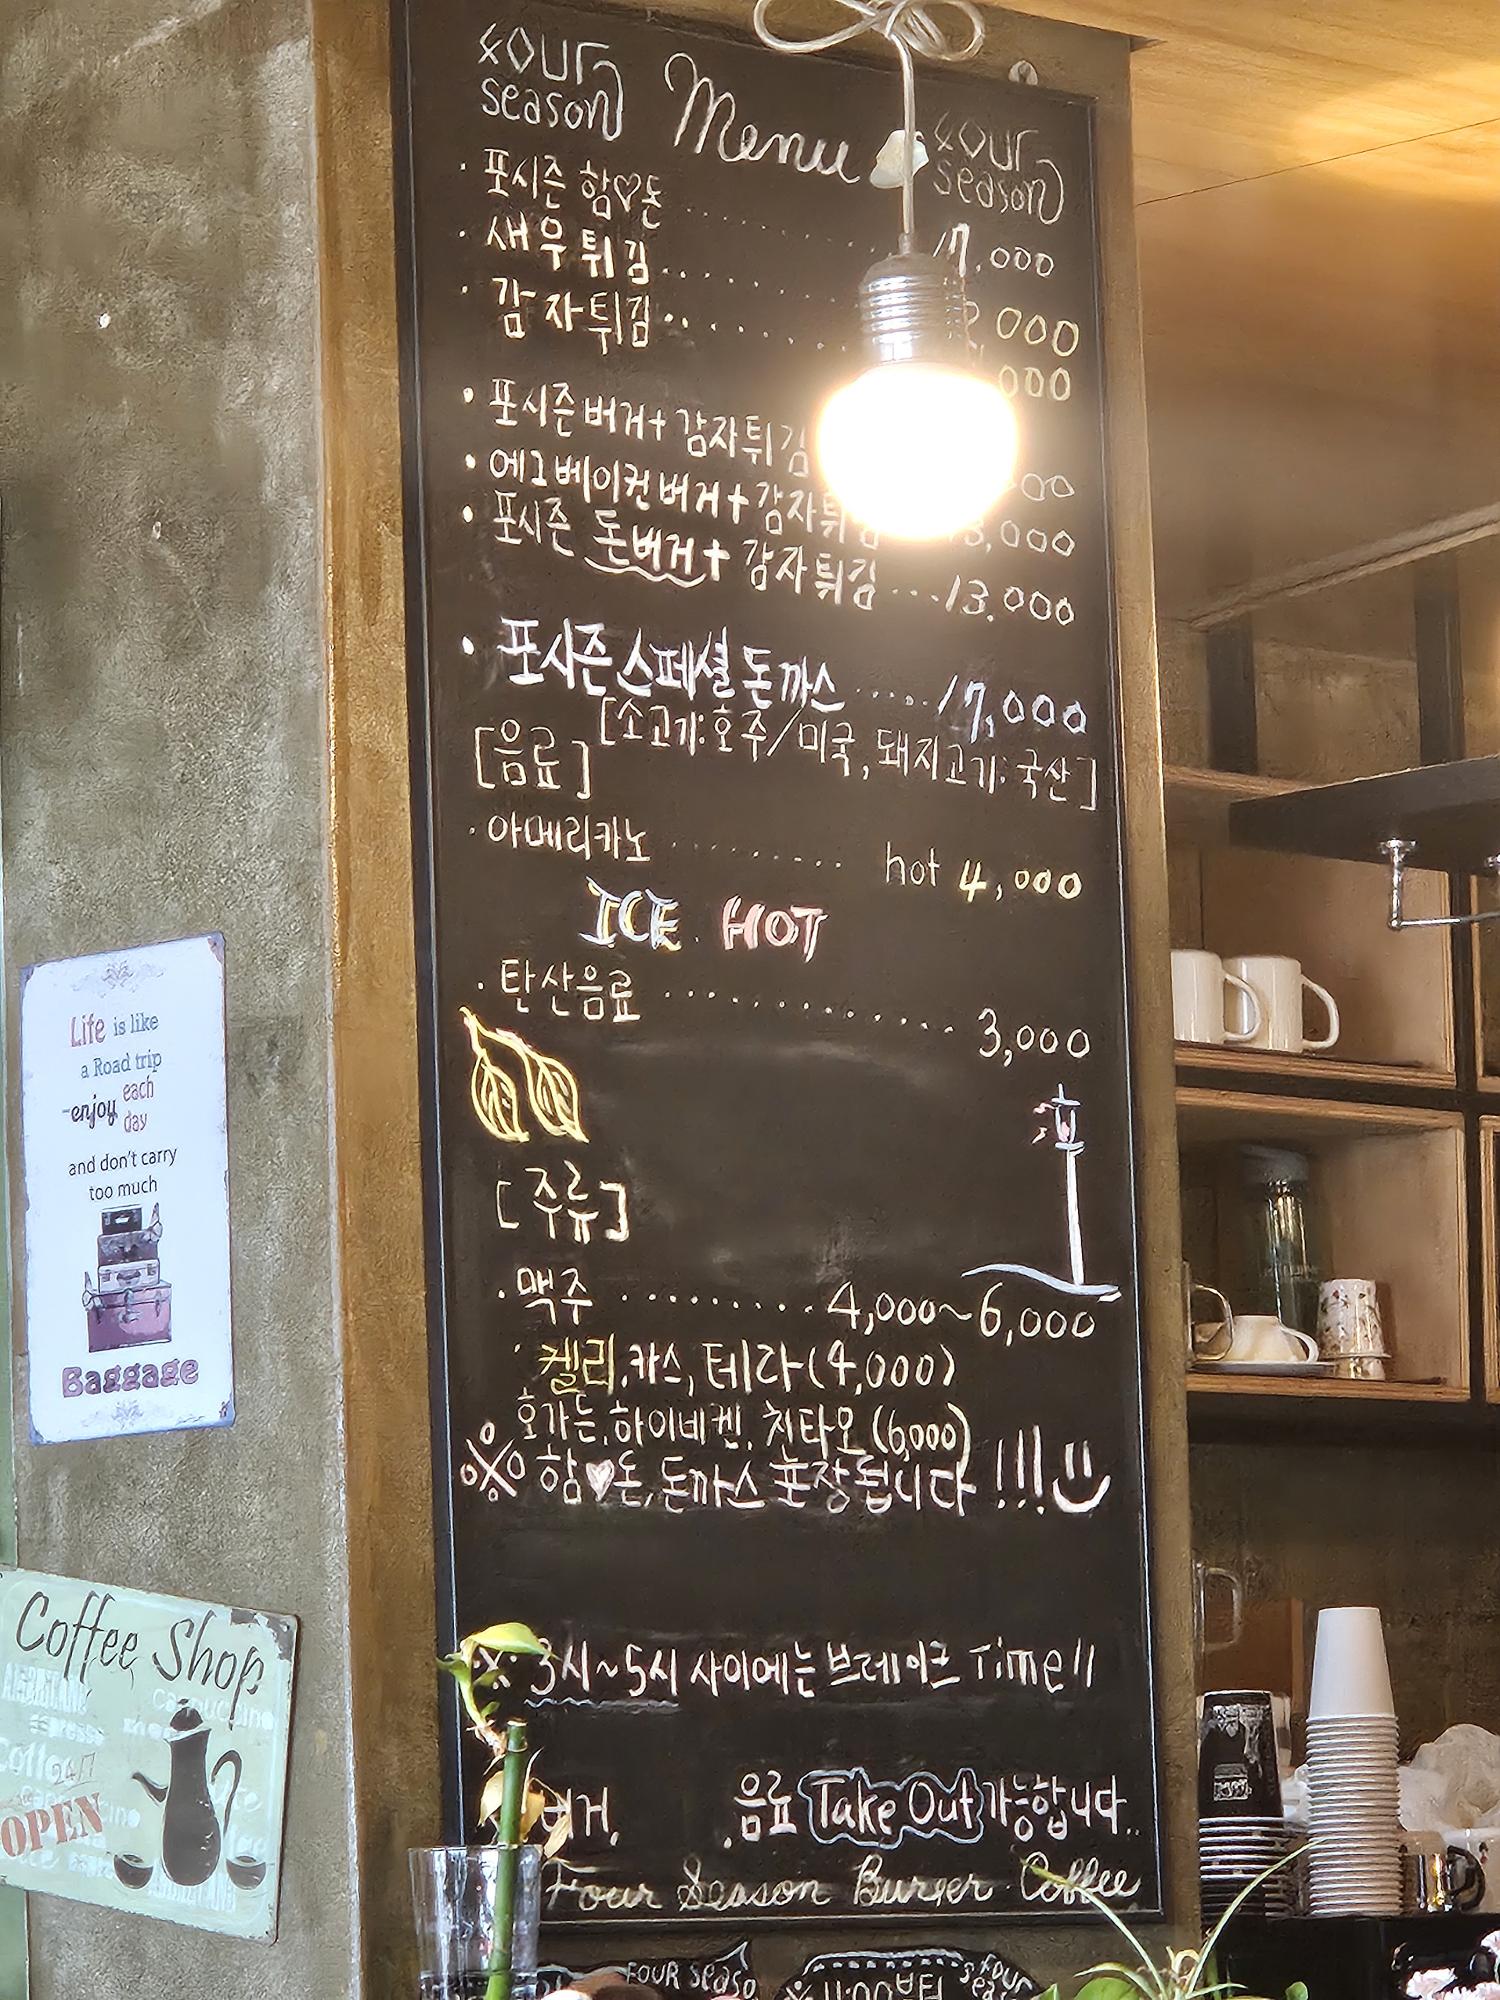 four season Menu four season
· 포시즌 함♡돈 ········ 17,000
· 새우튀김 ········ 000
· 감자튀김 ········ 000
· 포시즌버거+감자튀김
· 에그베이컨버거+감자튀김 ,000
· 포시즌 돈버거+감자튀김 ···13,000
· 포시즌스페셜돈까스 ·····17,000
[소고기:호주/미국, 돼지고기:국산]
[음료]
· 아메리카노 ·········· hot 4,000
ICE HOT
· 탄산음료 ············· 3,000
[주류]
· 맥주 ·········4,000~6,000
· 켈리,카스,테라(4,000)
호가든,하이네켄, 친타오(6,000)
※ 함♥돈,돈까스 포장됩니다 !!!
※ 3시~5시 사이에는 브레이크 Time!!
버거, 음료 Take Out 가능합니다..
Four Season Burger Coffee
FOUR Seaso
※11:00부터
four season
Life is like
a Road trip
-enjoy each day
and don't carry
too much
Baggage
Coffee Shop
cappuccino
24/7
OPEN